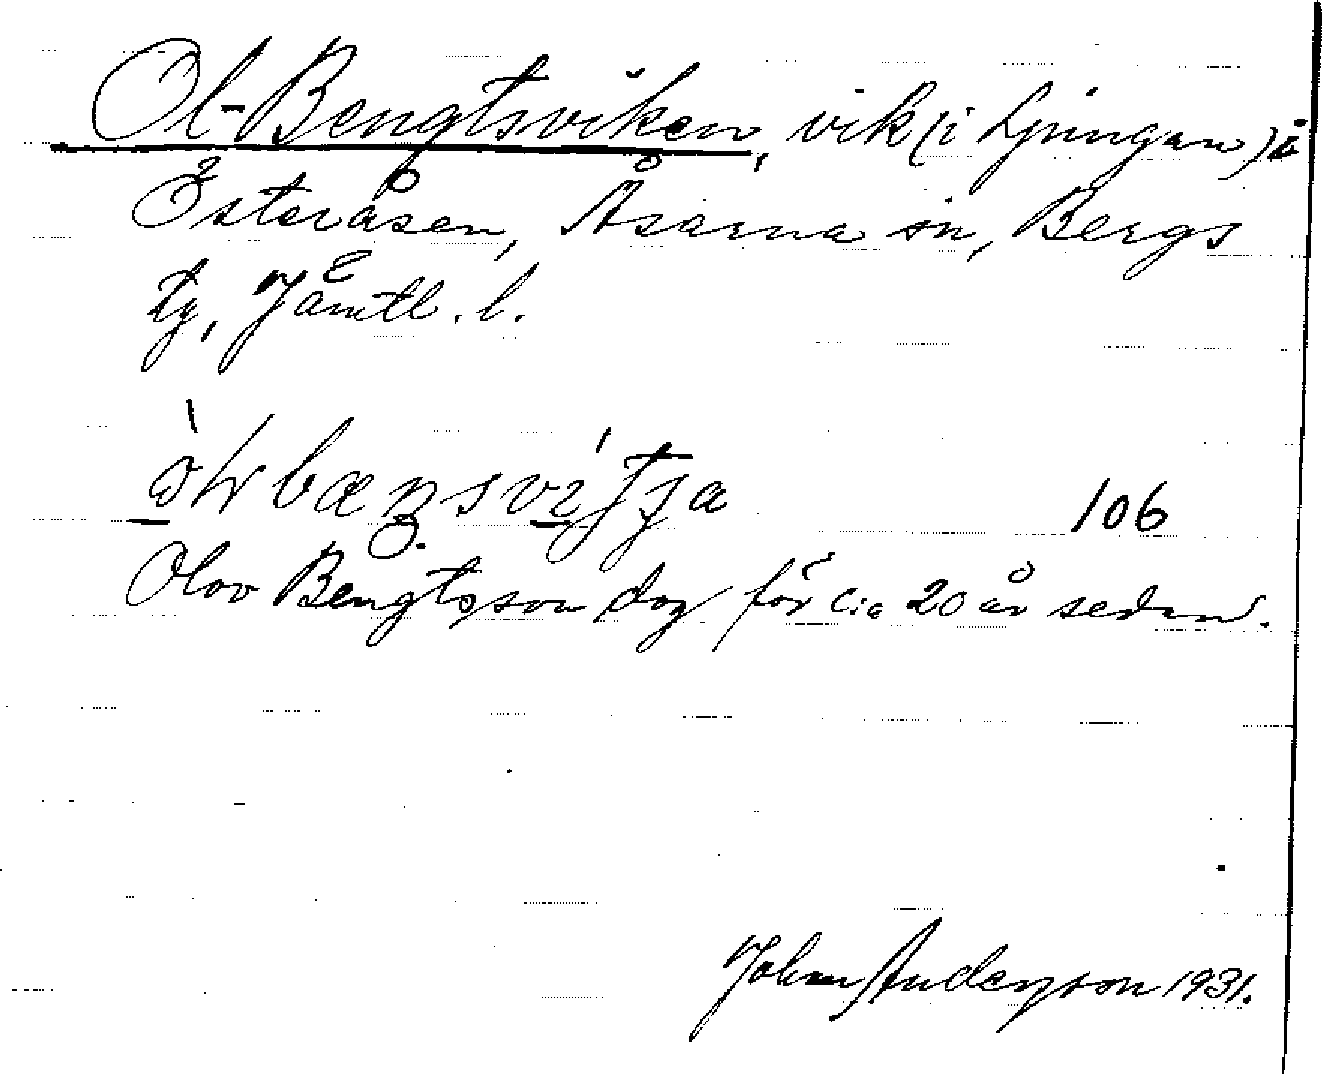 Ol-Bengtsviken, vik (i Ljungan) i
Österåsen, Åsarna sn, Bergs
tg, Jämtl. l.
106
Olov Bengtsson dog för c:a 20 år sedan.
John Andersson 1931.